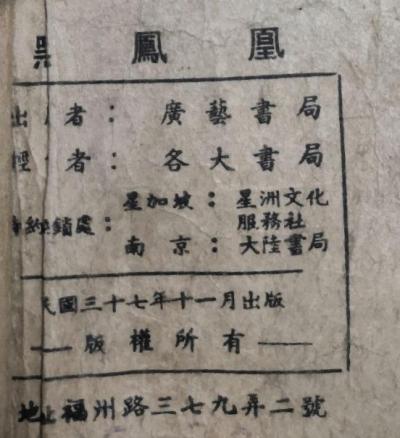 鳳凰
者：廣藝書局
者：各大書局
星加坡：星洲文化
服務社
經銷處：
南京：大陸書局
民國三十七年十一月出版
版權所有
地 福州路三七九弄二號